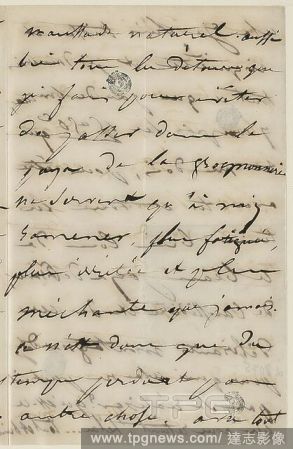 maussade naturel. aussi
bien tous les détours que
je fais pour éviter
de passer dans le
pays de la grognonnerie
ne servent qu'à m'y
ramener, plus fatiguée,
plus irritée et plus
méchante que jamais.
ce n'est donc que du
temps perdu pour
autre chose. avec tout
TPG
www.tpgnews.com/達志影像